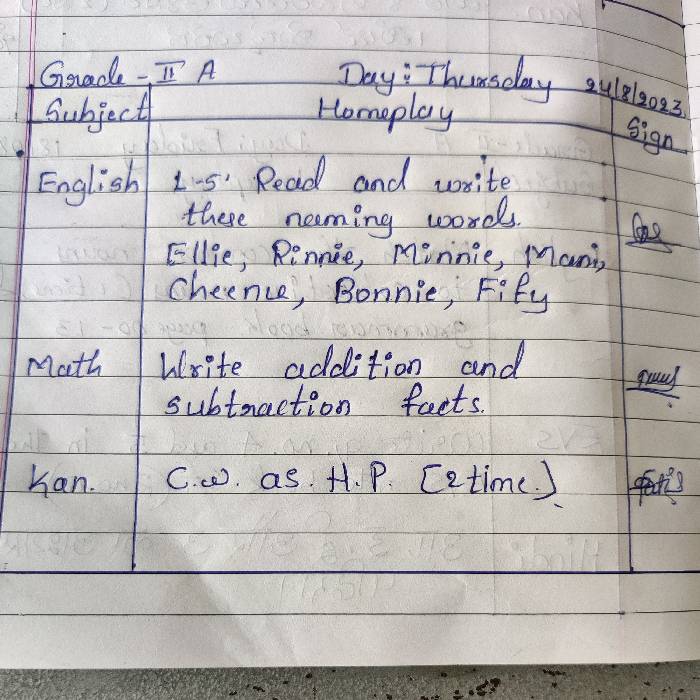 Grade - II A Day: Thursday 24/8/2023
Subject Homeplay Sign
English L-5' Read and write
these naming words.
Ellie, Rinnie, Minnie, Mani,
Cheenue, Bonnie, Fify
Math Write addition and
subtraction facts.
Kan. C.w. as. H.P. [2 time.]